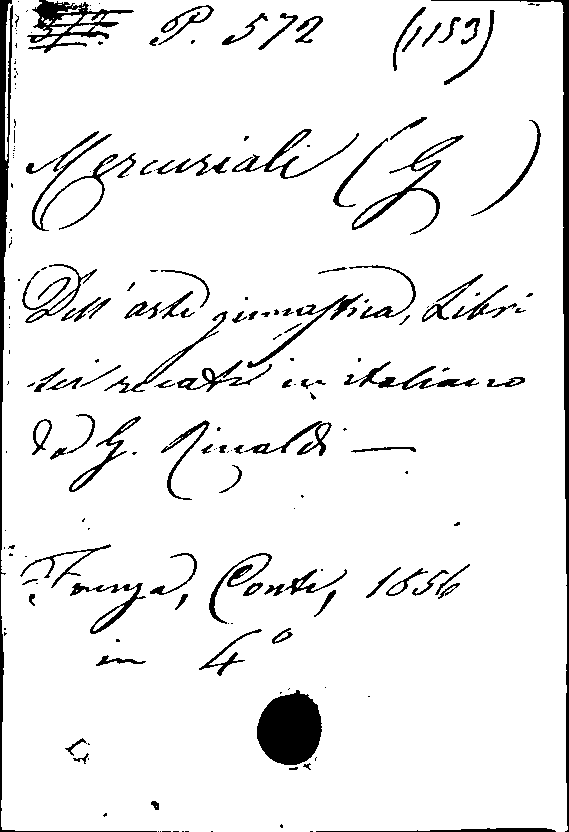 P. 572 (1153)
Mercuriali (G)
Dell' arte ginnastica, Libri
sei recati in italiano
da G. Rinaldi —
Faenza, Conti, 1856
in 4°